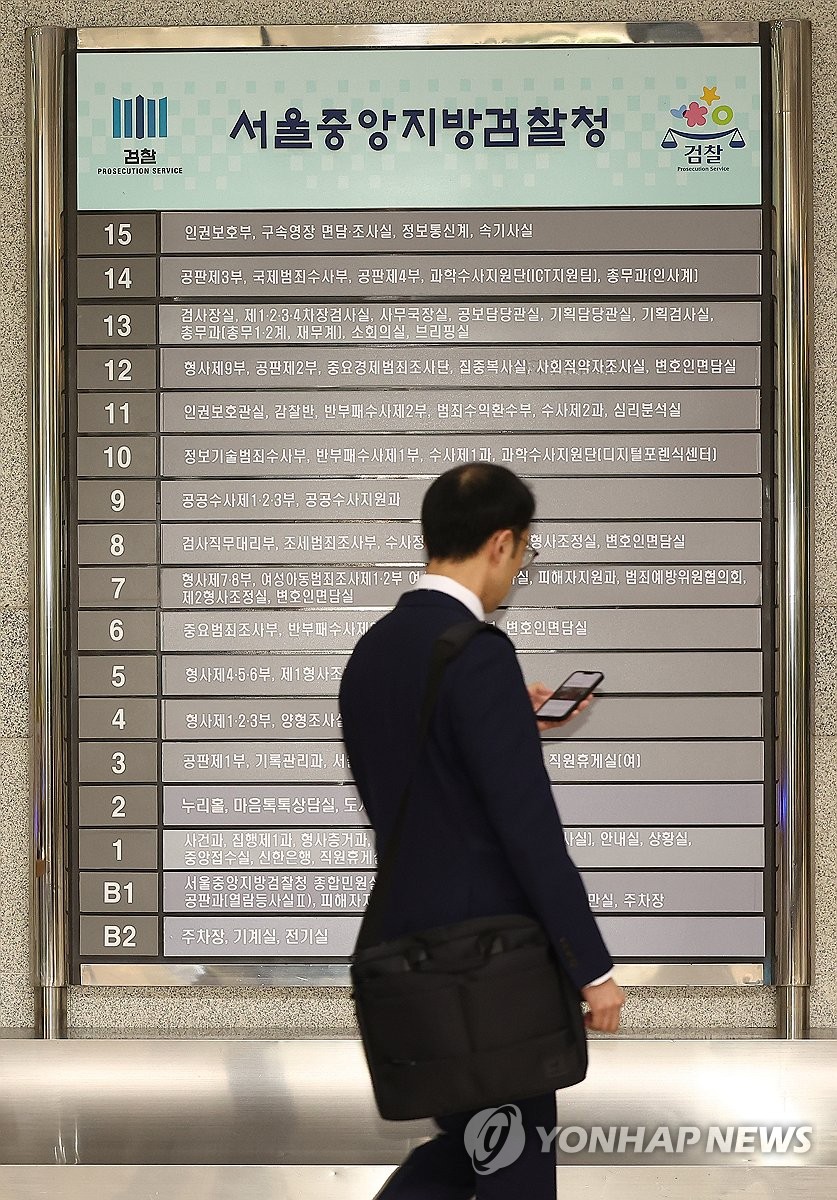 검찰
PROSECUTION SERVICE
서울중앙지방검찰청
검찰
Prosecution Service
15 인권보호부, 구속영장 면담·조사실, 정보통신계, 속기사실
14 공판제3부, 국제범죄수사부, 공판제4부, 과학수사지원단(ICT지원팀), 총무과(인사계)
13 검사장실, 제1·2·3·4차장검사실, 사무국장실, 공보담당관실, 기획담당관실, 기획검사실,
총무과(총무1·2계, 재무계), 소회의실, 브리핑실
12 형사제9부, 공판제2부, 중요경제범죄조사단, 집중복사실, 사회적약자조사실, 변호인면담실
11 인권보호관실, 감찰반, 반부패수사제2부, 범죄수익환수부, 수사제2과, 심리분석실
10 정보기술범죄수사부, 반부패수사제1부, 수사제1과, 과학수사지원단(디지털포렌식센터)
9 공공수사제1·2·3부, 공공수사지원과
8 검사직무대리부, 조세범죄조사부, 수사정 형사조정실, 변호인면담실
7 형사제7·8부, 여성아동범죄조사제1·2부 여 실, 피해자지원과, 범죄예방위원협의회,
제2형사조정실, 변호인면담실
6 중요범죄조사부, 반부패수사제 변호인면담실
5 형사제4·5·6부, 제1형사조
4 형사제1·2·3부, 양형조사실
3 공판제1부, 기록관리과, 서 직원휴게실(여)
2 누리홀, 마음톡톡상담실, 도
1 사건과, 집행제1과, 형사증거과, 사실), 안내실, 상황실,
중앙접수실, 신한은행, 직원휴게
B1 서울중앙지방검찰청 종합민원
공판과(열람등사실Ⅱ), 피해자 만실, 주차장
B2 주차장, 기계실, 전기실
YONHAP NEWS